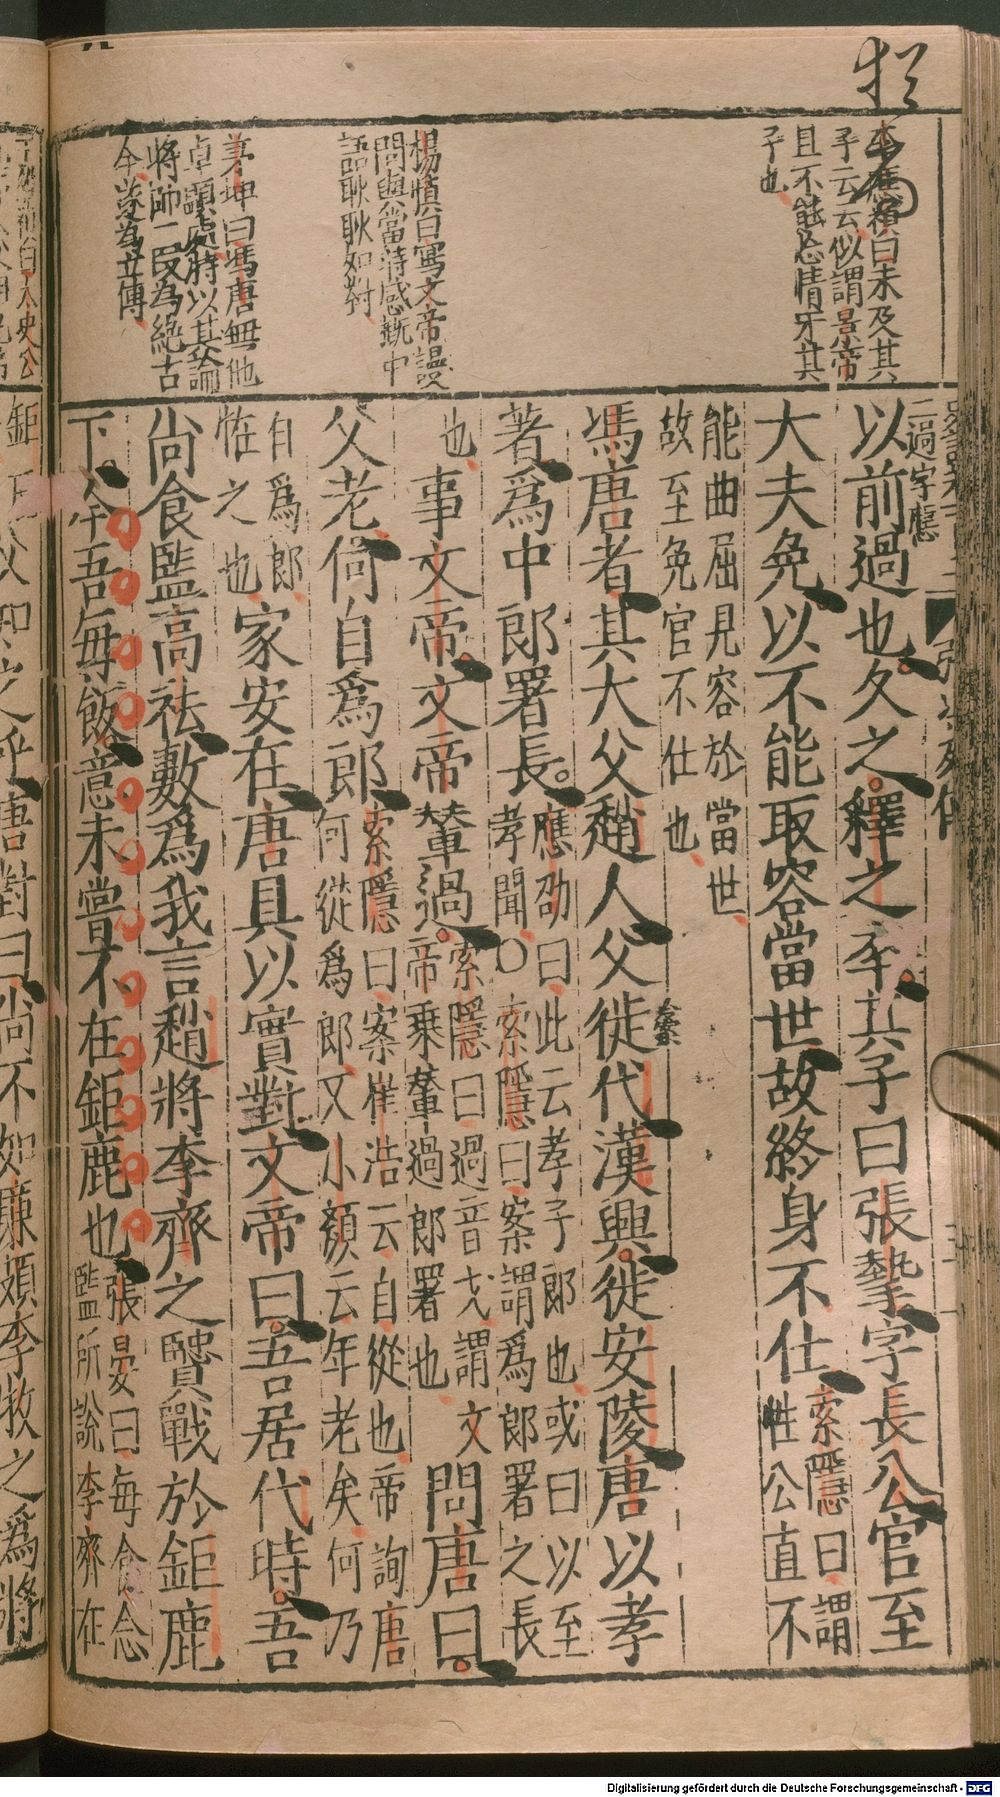 李應禎曰未及其
子云云似謂景帝
且不能忘情牙其
子也
楊慎曰寫文帝謾
問與當時感慨中
語耿耿如對
茅坤曰馮唐無他
卓顯處特以其論
將帥一段為絕古
今遂為立傳
二過字應
以前過也久之釋之卒其子曰張摯字長公官至
大夫免以不能取容當世故終身不仕
索隱曰謂
性公直不
能曲屈見容於當世
故至免官不仕也
馮唐者其大父趙人父徙代漢興徙安陵唐以孝
著爲中郎署長
應劭曰此云孝子郎也或曰以至
孝聞〇索隱曰案謂爲郎署之長
也
事文帝文帝輦過
索隱曰過音戈謂文
帝乘輦過郎署也
問唐曰
父老何自爲郎
索隱曰案崔浩云自從也帝詢唐
何從爲郎又小顏云年老矣何乃
自爲郎
恠之也
家安在唐具以實對文帝曰吾居代時吾
尚食監高祛數爲我言趙將李齊之賢戰於鉅鹿
下今吾每飯意未嘗不在鉅鹿也
張晏曰每食念
監所說李齊在
唐對曰尚不如廉頗李牧之爲將
Digitalisierung gefördert durch die Deutsche Forschungsgemeinschaft - DFG